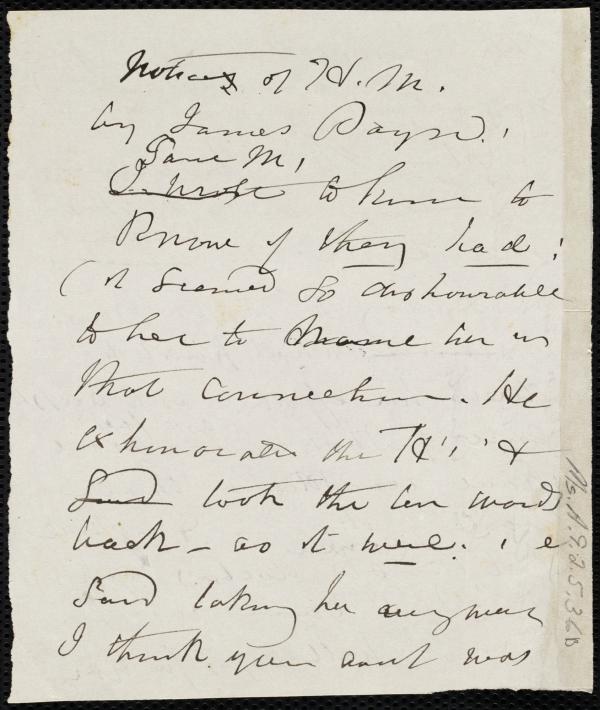 Notices of H. M.
by James Payn.
Jane M,
I wrote to him to
know if they had;
(it seemed so dishonourable
to her to name her in
that connection. He
exhonorates the H's, &
Said took the words
back - as it were. i e
Said taking her anyway
I think your aunt was
Ms.A.9.2.5.36b